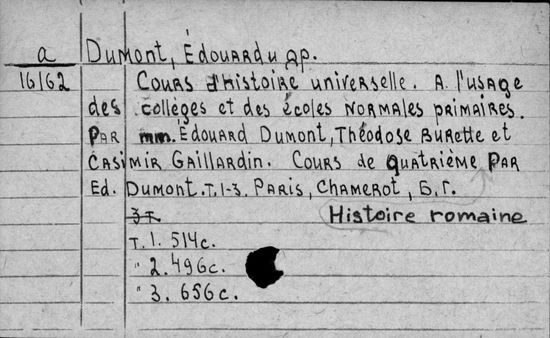 a
16162
Dumont, Édouard и др.
Cours d'histoire universelle. A l'usage
des collèges et des écoles normales primaires.
Par mm. Édouard Dumont, Théodose Burette et
Casimir Gaillardin. Cours de quatrième par
Ed. Dumont. T. 1-3. Paris, Chamerot, б.г.
3 т.
Histoire romaine
T. 1. 514 с.
" 2. 496 с.
" 3. 656 с.